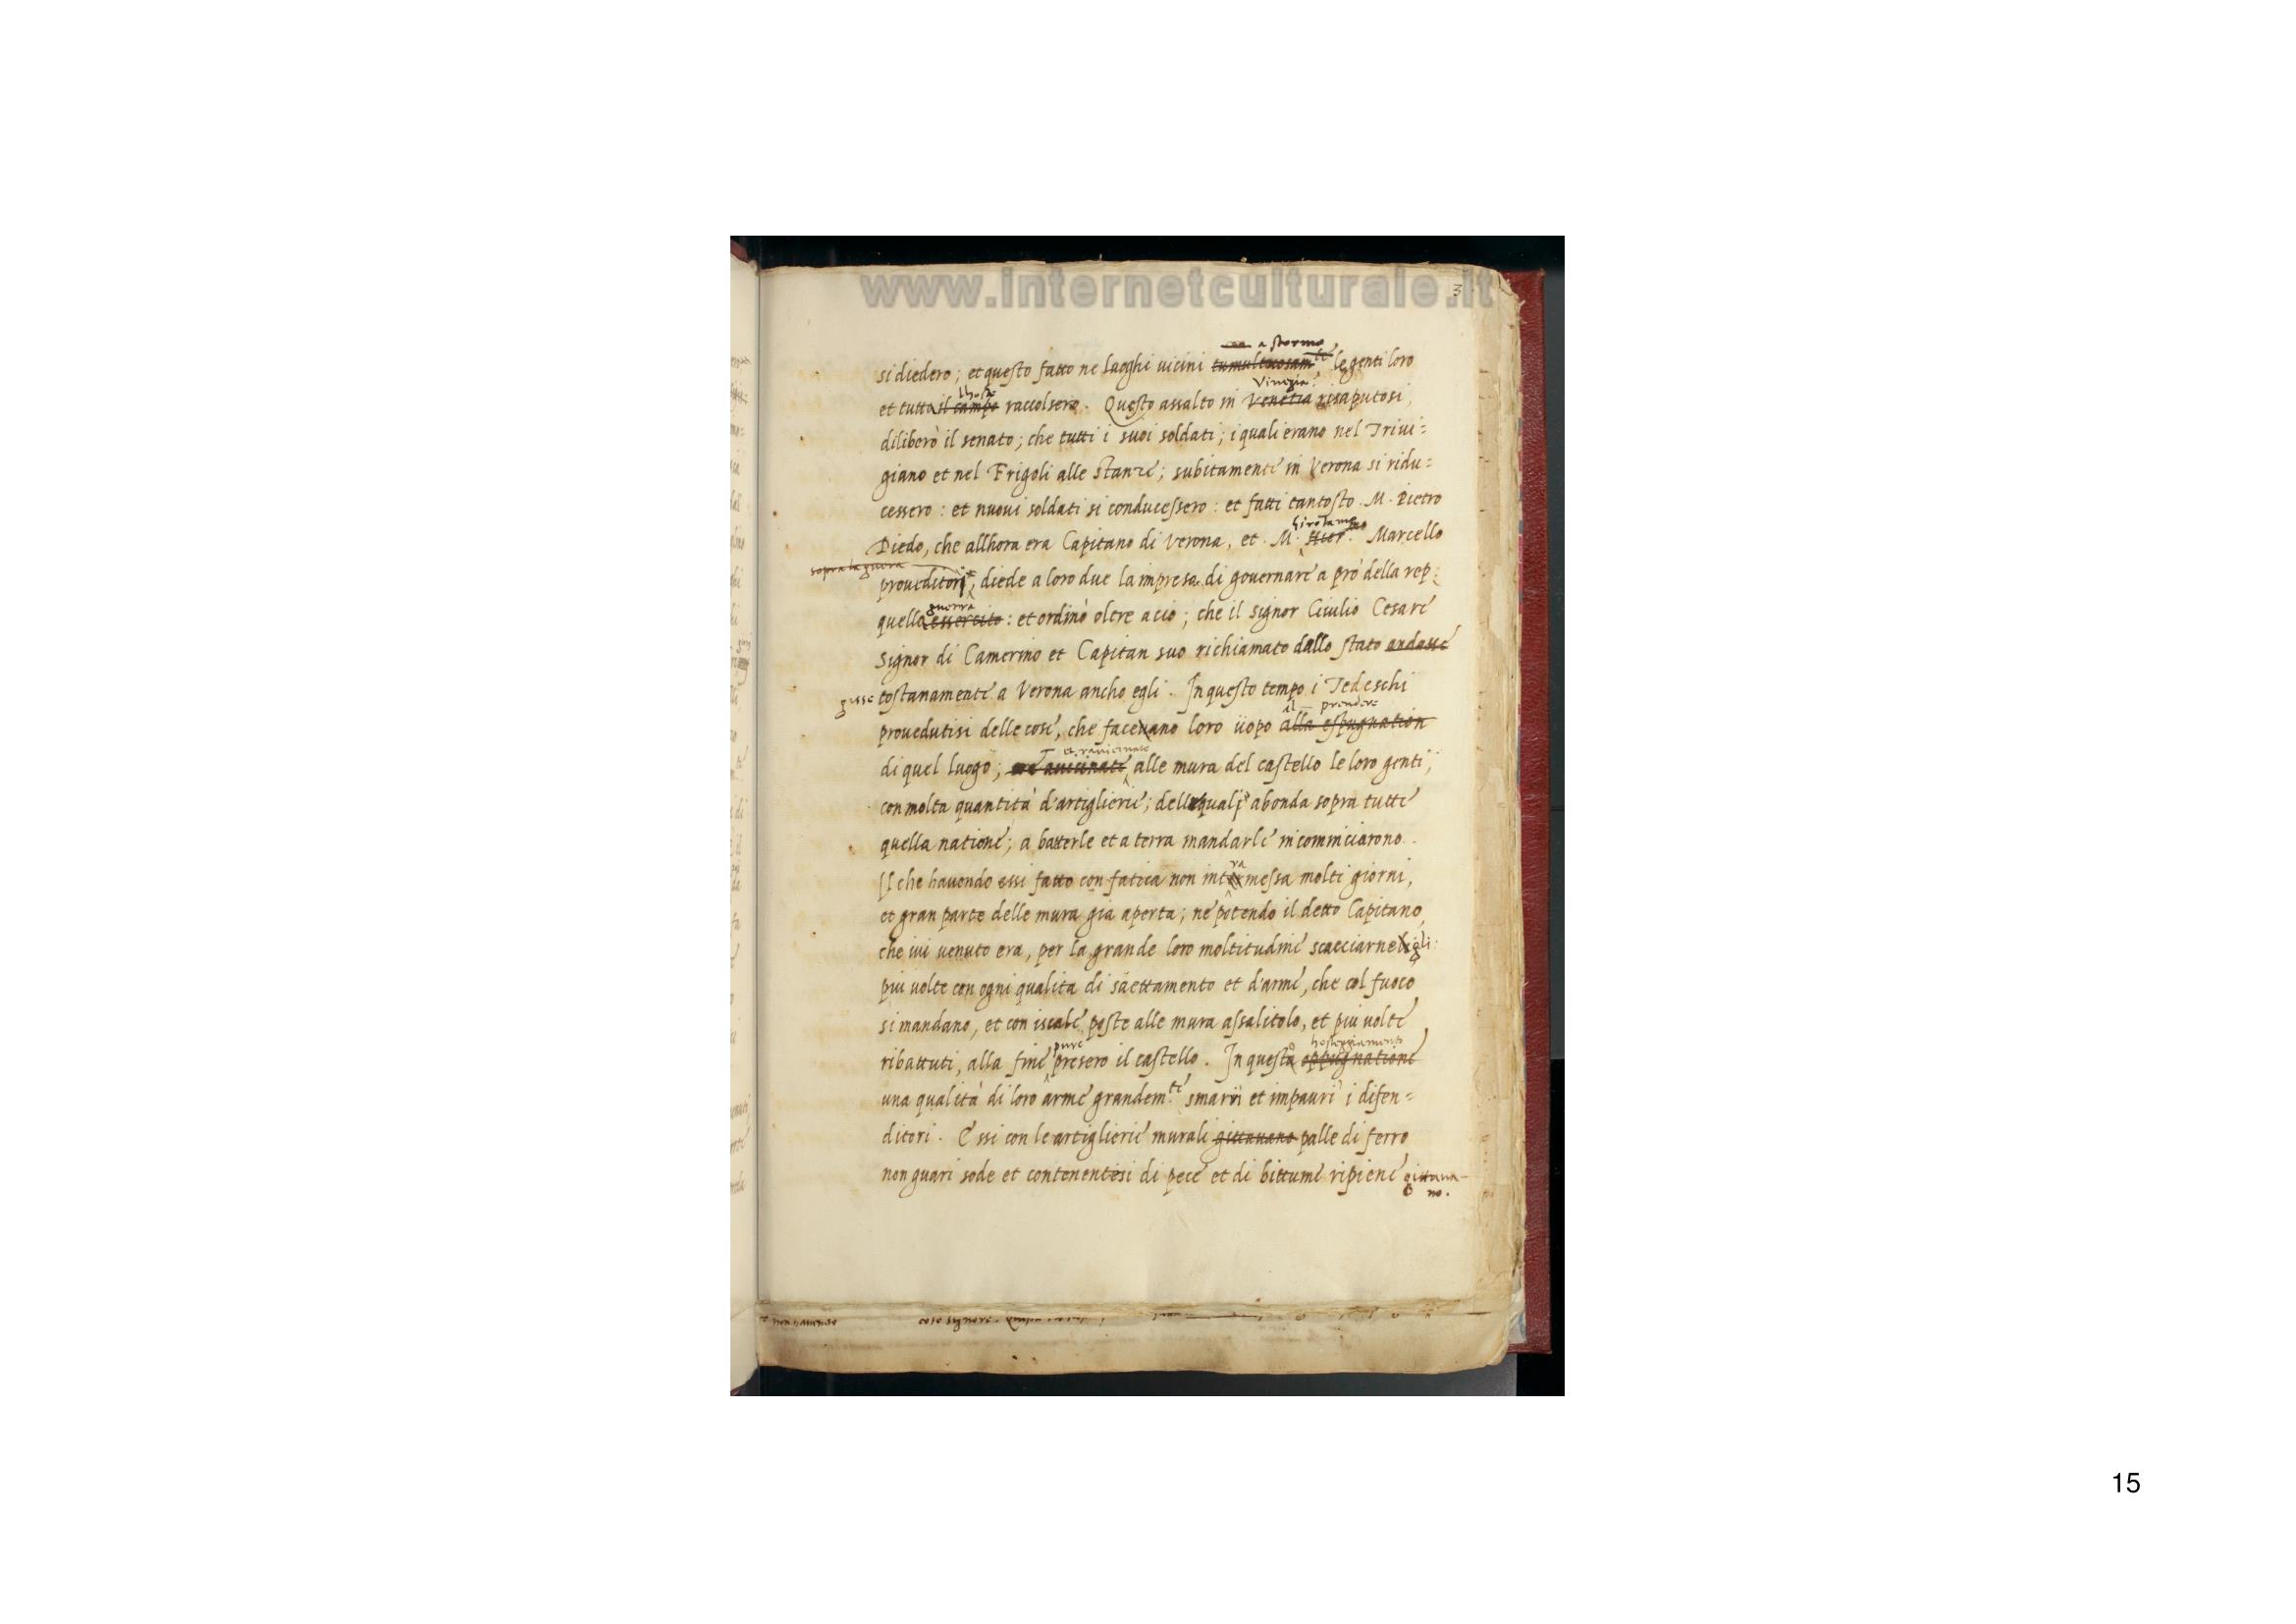 www.internetculturale.it
3
a stormo
si diedero; et questo fatto ne luoghi uicini tumultuosam.te le genti loro
lhoste Vinegia
et tutto il campo raccolsero. Questo assalto in Venetia risaputosi,
diliberò il senato; che tutti i suoi soldati; i quali erano nel Triui=
giano et nel Frigoli alle stanze; subitamente in Verona si ridu=
cessero: et nuoui soldati si conducessero: et fatti tantosto M. Pietro
hirolamo
Diedo, che allhora era Capitano di Verona, et M. Hier. Marcello
sopra la guerra
proueditori, diede a loro due la impresa di gouernare a prò della rep:
guerra
quella essercito: et ordinò oltre acio; che il signor Giulio Cesare
signor di Camerino et Capitan suo richiamato dallo stato andasse
gisse tostanamente a Verona ancho egli. In questo tempo i Tedeschi
il prendere
prouedutisi delle cose, che faceuano loro üopo alla espugnation
et rauicinate
di quel luogo; auicinate alle mura del castello le loro genti;
con molta quantità d'artiglierie; delle quali abonda sopra tutte
quella natione; a batterle et a terra mandarle incominciarono.
Il che hauendo essi fatto con fatica non intramessa molti giorni,
et gran parte delle mura gia aperta; ne potendo il detto Capitano,
che iui uenuto era, per la grande loro moltitudine scacciarnegli:
piu uolte con ogni qualita di säettamento et d'arme, che col fuoco
si mandano, et con iscale poste alle mura assalitolo, et piu uolte
pure hosteggiamento
ribattuti, alla fine presero il castello. In questo oppugnatione
una qualità di loro arme grandem.te smarrì et impaurì i difen=
ditori. Essi con le artiglierie murali gittauano palle di ferro
non guari sode et contenentesi di pece et di bittume ripiene gittaua-
no.
15